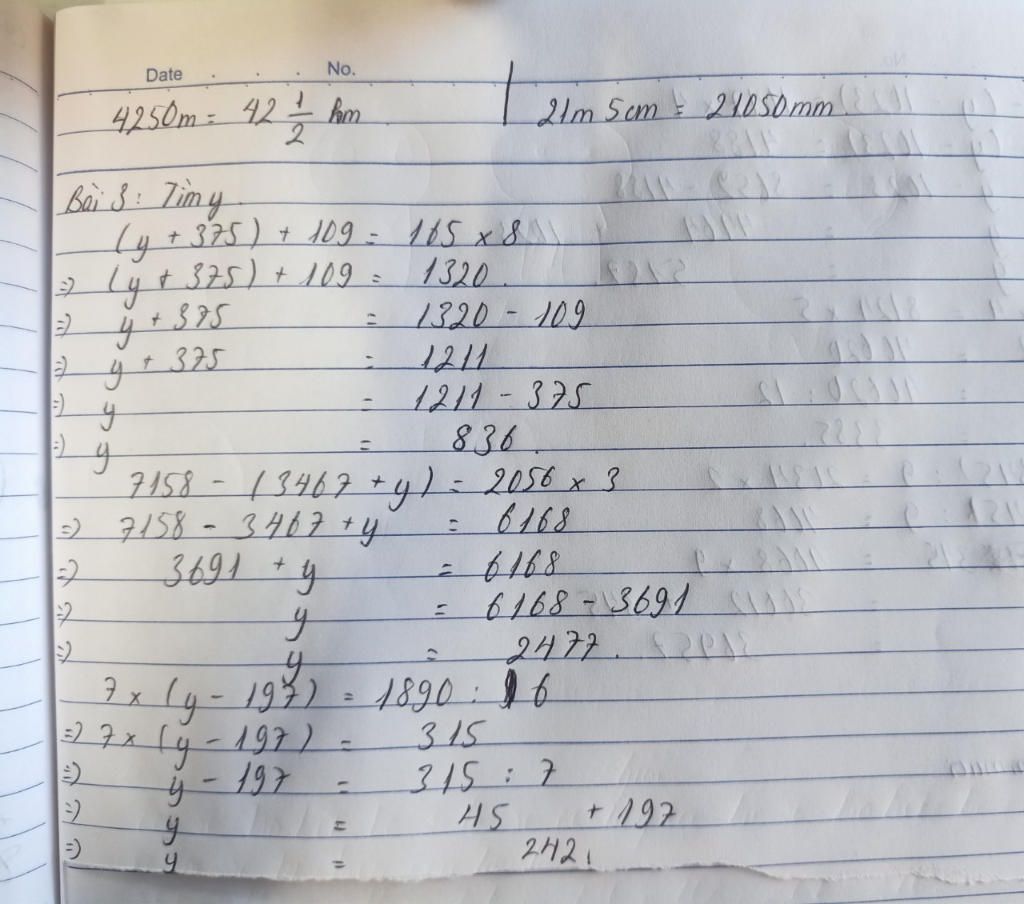 Date No.
4250m = 42 1/2 hm | 21m 5cm = 21050mm
Bài 3: Tìm y.
(y + 375) + 109 = 165 x 8
=> (y + 375) + 109 = 1320.
=> y + 375 = 1320 - 109
=> y + 375 = 1211
=> y = 1211 - 375
=> y = 836.
7158 - (3467 + y) = 2056 x 3
=> 7158 - 3467 + y = 6168
=> 3691 + y = 6168
=> y = 6168 - 3691
=> y = 2477.
7 x (y - 197) = 1890 : 6
=> 7 x (y - 197) = 315
=> y - 197 = 315 : 7
=> y = 45 + 197
=> y = 242.